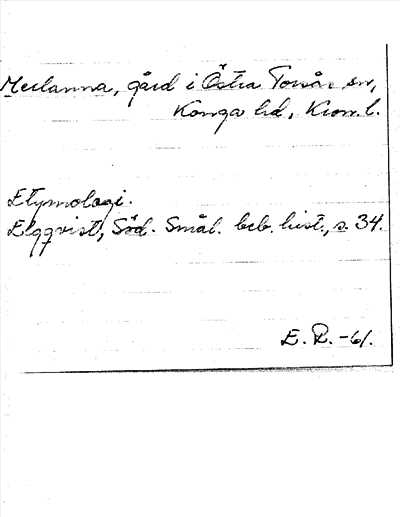 Mellanna, gård i Östra Torsås sn,
Konga hd, Kron. l.
Etymologi.
Elgqvist, Söd. Smål. beb. hist., s. 34.
E. R. -61.